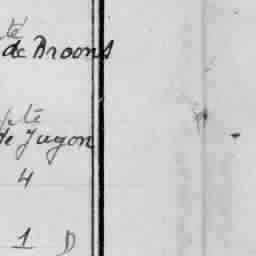 té
de Broons
pté
de Jugon
4
1 D